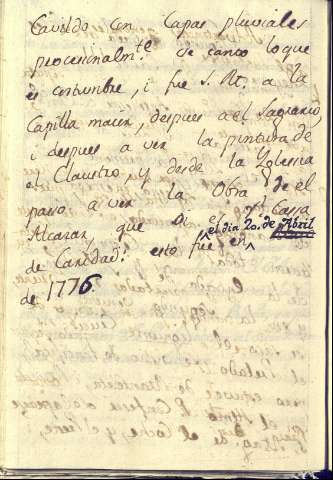 Cavildo con Capas pluviales
procesinalm.te se canto lo que
es costumbre, i fue S. Rl. a la
Capilla maior, despues a el Sagrario
i despues a ver la pintura de
el Claustro, y desde la Yglesia
paso a ver la Obra de el
Alcazar, que Di p.a Cassa
de Caridad: esto fue en el dia 20. de Abril
de 1776.